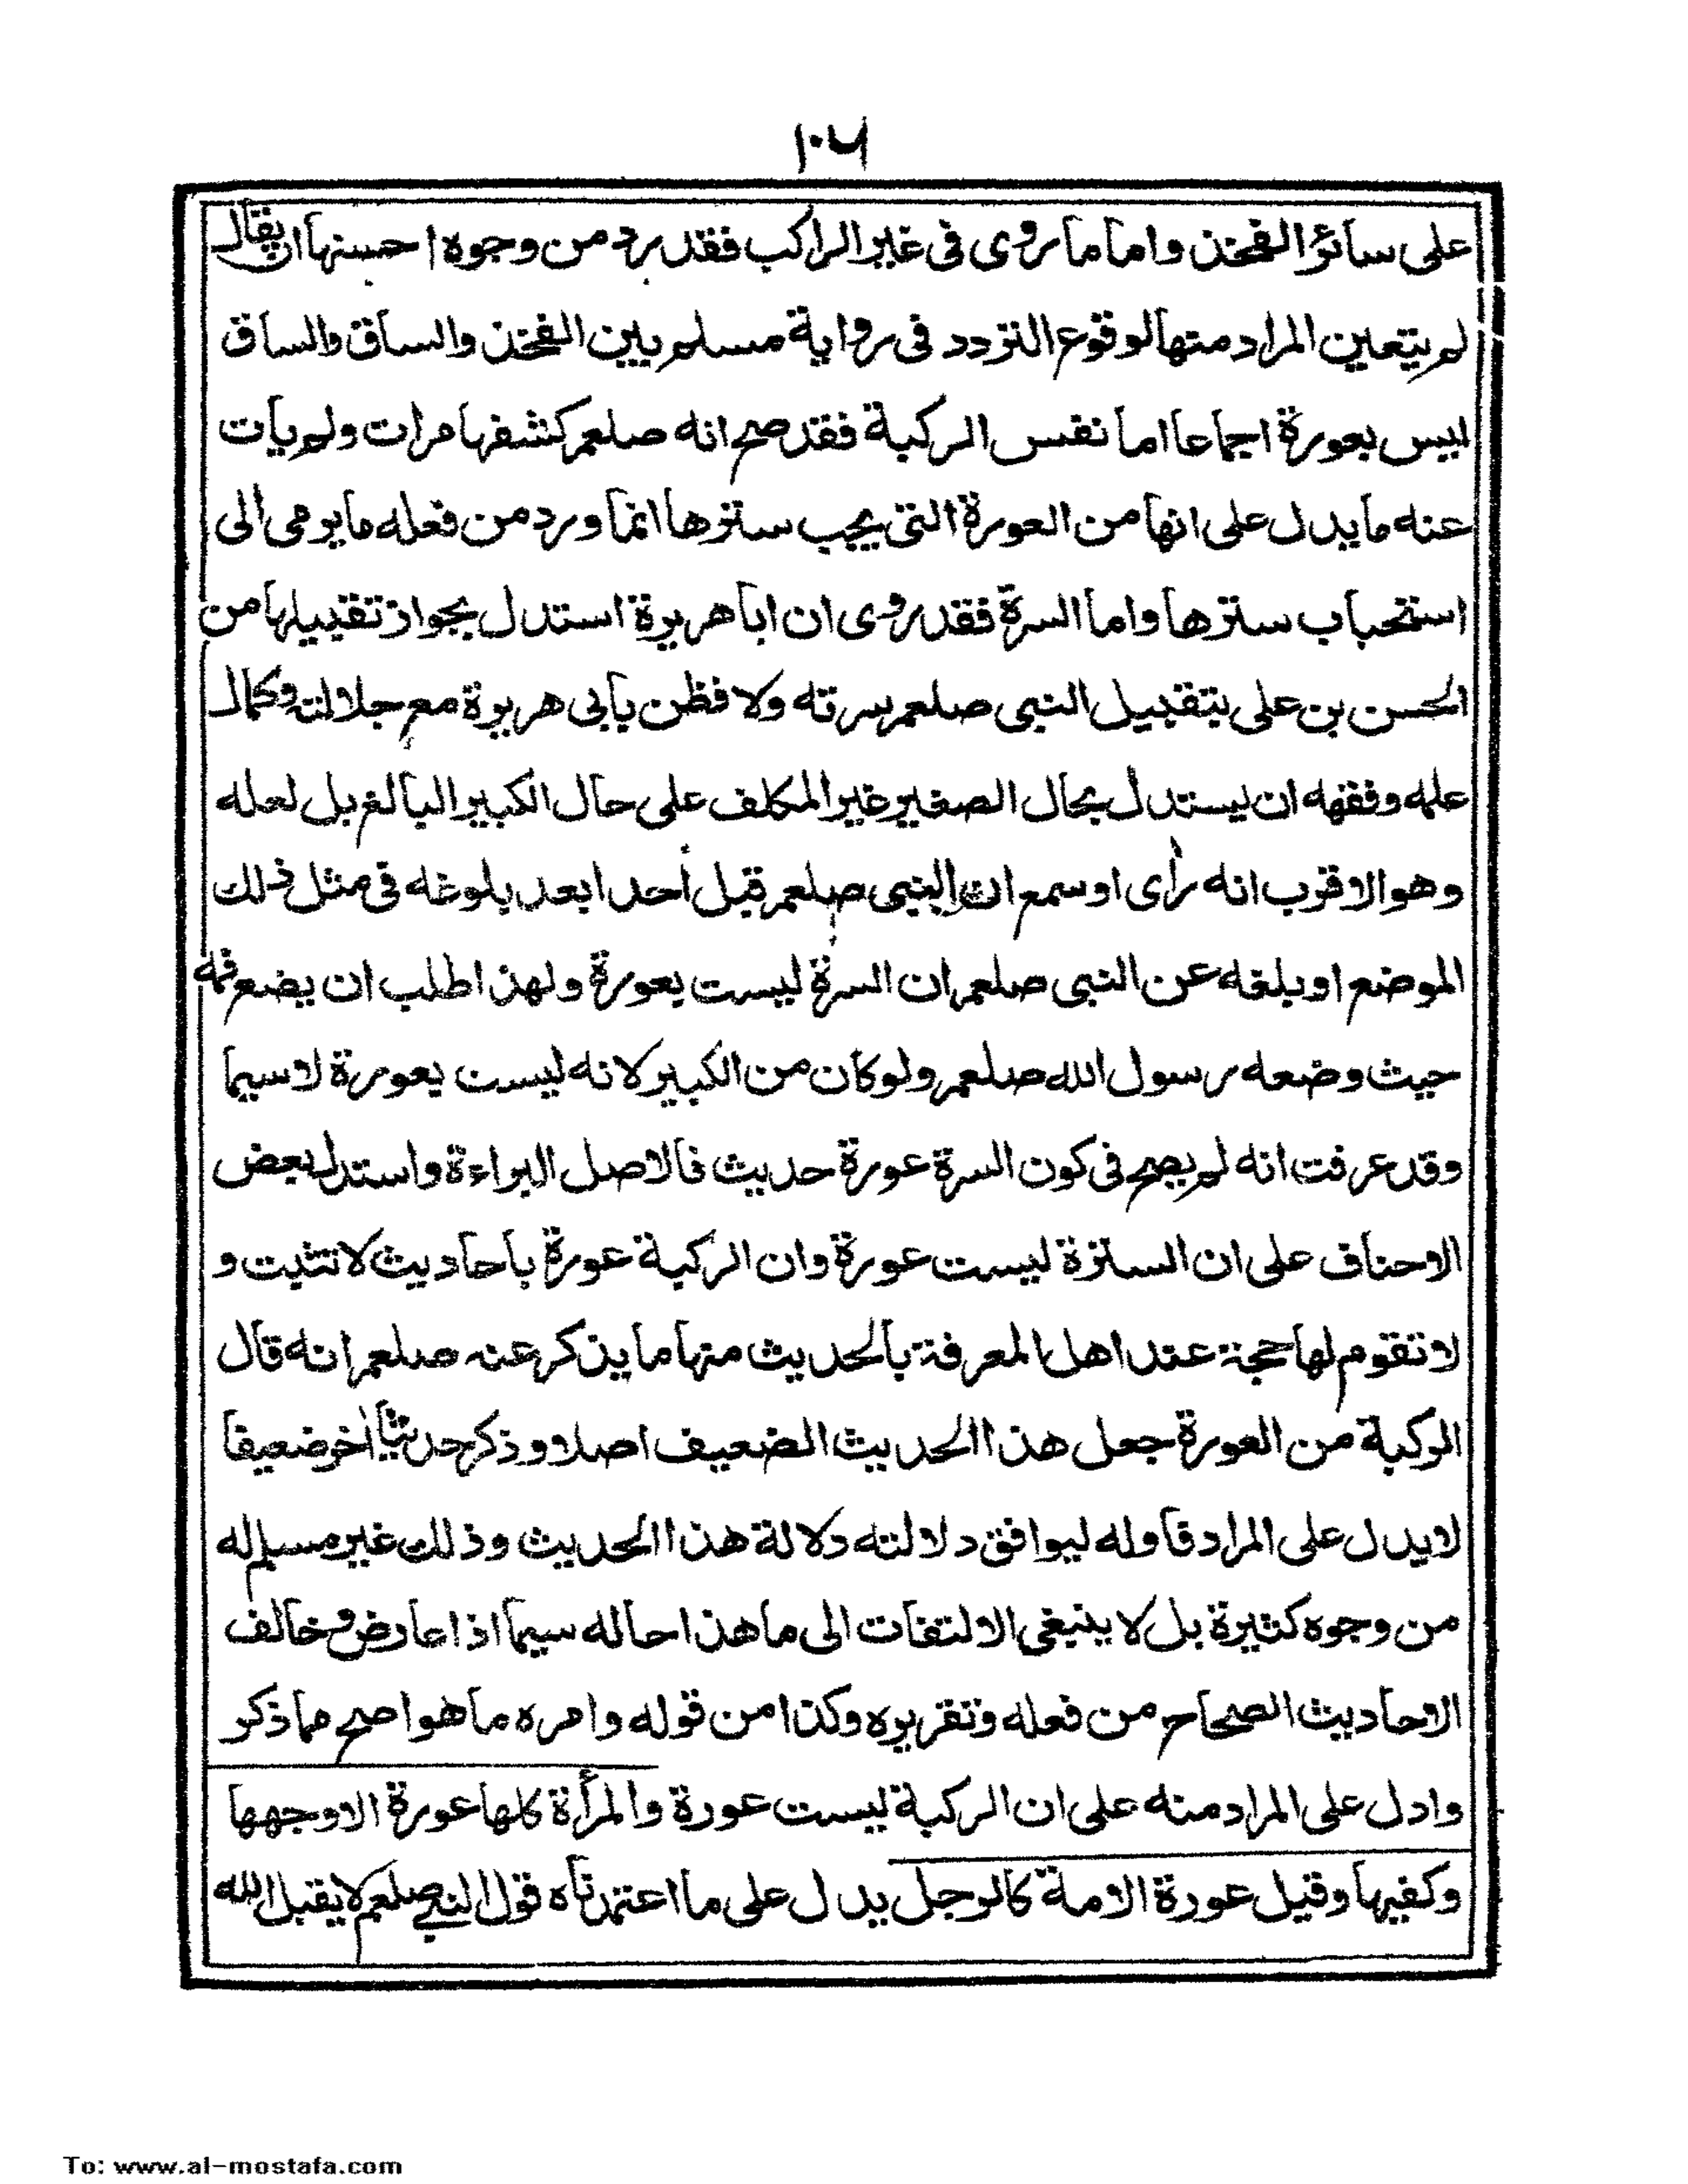 ١٠٦
على سائر الفخذ واما ما روى فى غير الراكب فقد يرد من وجوه احسنها ان يقال
لم يتعين المراد منها لوقوع التردد فى رواية مسلم بين الفخذ والساق والساق
ليس بعورة اجماعا اما نفس الركبة فقد صح انه صلعم كشفها مرات ولم يأت
عنه ما يدل على انها من العورة التى يجب سترها انما ورد من فعله ما يومى الى
استحباب سترها واما السرة فقد روى ان ابا هريرة استدل بجواز تقبيلها من
الحسن بن على بتقبيل النبى صلعم سرته ولا فظن بابى هريرة مع جلالته وكمال
علمه وفقهه ان يستدل بحال الصغير غير المكلف على حال الكبير البالغ بل لعله
وهو الاقرب انه رأى او سمع ان النبى صلعم قبل أحدا بعد بلوغه فى مثل ذلك
الموضع او بلغه عن النبى صلعم ان السرة ليست بعورة ولهذا طلب ان يضع فمه
حيث وضعه رسول الله صلعم ولو كان من الكبير لانه ليست بعورة لا سيما
وقد عرفت انه لم يصح فى كون السرة عورة حديث فالاصل البراءة واستدل بعض
الاحناف على ان السترة ليست عورة وان الركبة عورة باحاديث لا تثبت و
لا تقوم لها حجة عند اهل المعرفة بالحديث منها ما يذكر عنه صلعم انه قال
الركبة من العورة جعل هذا الحديث الضعيف اصلا وذكر حديثا أخر ضعيفا
لا يدل على المراد فاوله ليوافق دلالته دلالة هذا الحديث وذلك غير مسلم له
من وجوه كثيرة بل لا ينبغى الالتفات الى ما هذا حاله سيما اذا عارض وخالف
الاحاديث الصحاح من فعله وتقريره وكذا من قوله وامره ما هو اصح مما ذكر
وادل على المراد منه على ان الركبة ليست عورة والمرأة كلها عورة الا وجهها
وكفيها وقيل عورة الامة كالرجل يدل على ما اعتمدناه قول النبى صلعم لا يقبل الله
To: www.al-mostafa.com